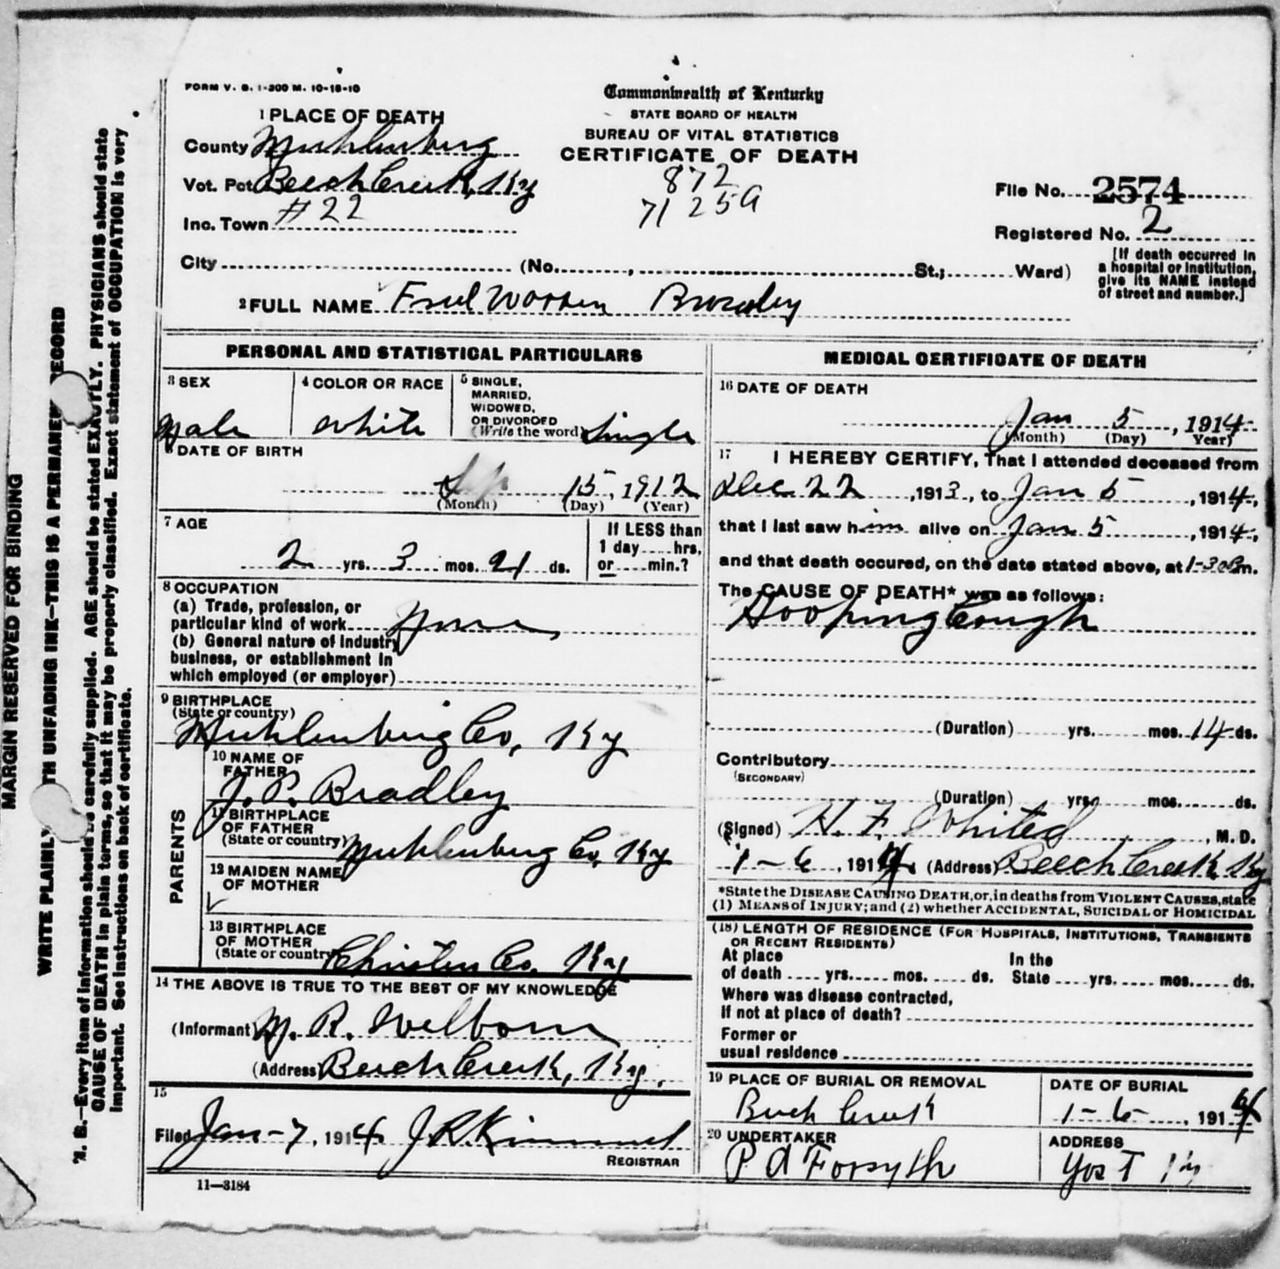 FORM V. S. 1-300 M. 10-18-10
Commonwealth of Kentucky
STATE BOARD OF HEALTH
BUREAU OF VITAL STATISTICS
CERTIFICATE OF DEATH
872
71 25a
1 PLACE OF DEATH
County Muhlenburg
Vot. Pct. Beech Creek, Ky
Inc. Town #22
City (No. , St.; Ward)
File No. 2574
Registered No. 2
[If death occurred in
a hospital or institution,
give its NAME instead
of street and number.]
2 FULL NAME Warren Bradley
PERSONAL AND STATISTICAL PARTICULARS
3 SEX
Male
4 COLOR OR RACE
White
5 SINGLE,
MARRIED,
WIDOWED,
OR DIVORCED
(Write the word) Single
6 DATE OF BIRTH
Sep 15, 1912
(Month) (Day) (Year)
7 AGE
2 yrs. 3 mos. 21 ds.
If LESS than
1 day hrs.
or min.?
8 OCCUPATION
(a) Trade, profession, or
particular kind of work None
(b) General nature of Industry
business, or establishment in
which employed (or employer)
9 BIRTHPLACE
(State or country)
Muhlenburg Co, Ky
PARENTS
10 NAME OF
FATHER
J. P. Bradley
11 BIRTHPLACE
OF FATHER
(State or country) Muhlenburg Co, Ky
12 MAIDEN NAME
OF MOTHER
13 BIRTHPLACE
OF MOTHER
(State or country) Christen Co. Ky
14 THE ABOVE IS TRUE TO THE BEST OF MY KNOWLEDGE
(Informant) M. R. Welborn
(Address) Beech Creek, Ky.
15
Filed Jan-7, 1914 J R Kimmel
REGISTRAR
11-3184
MEDICAL CERTIFICATE OF DEATH
16 DATE OF DEATH
Jan 5, 1914
(Month) (Day) Year)
17 I HEREBY CERTIFY, That I attended deceased from
Dec 22, 1913, to Jan 5, 1914,
that I last saw him alive on Jan 5, 1914,
and that death occured, on the date stated above, at 1-30 Pm.
The CAUSE OF DEATH* was as follows:
Hooping Cough
(Duration) yrs. mos. 14 ds.
Contributory
(SECONDARY)
(Duration) yrs. mos. ds.
(Signed) H. F. Whited, M. D.
1-6, 1914 (Address) Beech Creek Ky
*State the DISEASE CAUSING DEATH, or, in deaths from VIOLENT CAUSES, state
(1) MEANS of INJURY; and (2) whether ACCIDENTAL, SUICIDAL or HOMICIDAL
(18) LENGTH OF RESIDENCE (FOR HOSPITALS, INSTITUTIONS, TRANSIENTS
OR RECENT RESIDENTS)
At place
of death yrs. mos. ds.
In the
State yrs. mos. ds.
Where was disease contracted,
If not at place of death?
Former or
usual residence
19 PLACE OF BURIAL OR REMOVAL
Beech Creek
DATE OF BURIAL
1-6-, 1914
20 UNDERTAKER
P A Forsyth
ADDRESS
Yost Ky
MARGIN RESERVED FOR BINDING
WRITE PLAINLY TH UNFADING INK—THIS IS A PERMANEN RECORD
N. B.—Every item of information should be carefully supplied. AGE should be stated EXACTLY. PHYSICIANS should state
CAUSE OF DEATH in plain terms, so that it may be properly classified. Exact statement of OCCUPATION is very
important. See instructions on back of certificate.